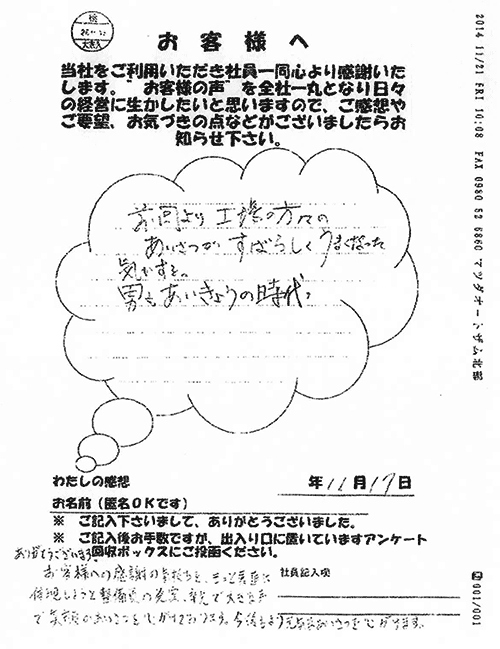 お客様へ
当社をご利用いただき社員一同心より感謝いた
します。"お客様の声"を全社一丸となり日々
の経営に生かしたいと思いますので、ご感想や
ご要望、お気づきの点などがございましたらお
知らせ下さい。
前回より工場の方々の
あいさつが すばらしくうまくなった
気がする。
男もあいきょうの時代?
わたしの感想
年11月17日
お名前(匿名OKです)
※ ご記入下さいまして、ありがとうございました。
※ ご記入後お手数ですが、出入り口に置いていますアンケート
回収ボックスにご投函ください。
ありがとうございます
社員記入欄
お客様への感謝の気持ちを、もっと
で を心がけております。今後もより元気なあいさつを心がけます。
2014 11/21 FRI 10:08 FAX 0980 52 6860 マツダオートザム北部
001/001